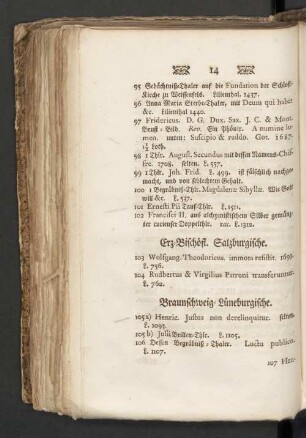 14
95 Gedächtniß-Thaler auf die Fundation der Schloß-
Kirche zu Weissenfels. Lilienthal. 1437.
96 Anna Maria Sterbe-Thaler, mit Deum qui habet
&c. Lilienthal 1440.
97 Fridericus. D. G. Dux. Sax. J. C. & Mont.
Brust-Bild. Rev. Ein Phönix. A numine lu-
men. unten: Suscipio & reddo. Got. 1687.
1½ Loth.
98 1 Thlr. August. Secundus mit dessen Namens-Chif-
fre. 1708. selten. L. 557.
99 1 Thlr. Joh. Frid. L. 499. ist fälschlich nachge-
macht, und von schlechtem Gehalt.
100 1 Begräbniß-Thlr. Magdalenæ Sibyllæ. Wie Gott
will &c. L. 537.
101 Ernesti Pii Tauf-Thlr. L. 1511.
102 Francisci II. aus alchymistischem Silber gemünz-
ter Doppelthlr. rar. L. 1312.
Erz-Bischöfl. Salzburgische.
103 Wolfgang. Theodoricus. immon resistit. 1590.
L. 756.
104 Rudbertus & Virgilius Patroni transferuntur.
L. 762.
Braunschweig-Lüneburgische.
105a) Henric. Justus non derelinquitur. selten.
L. 1093.
105b) Julii Brillen-Thlr. L. 1105.
106 Dessen Begräbniß-Thaler. Luctu publico.
L. 1107.
107 Hen-